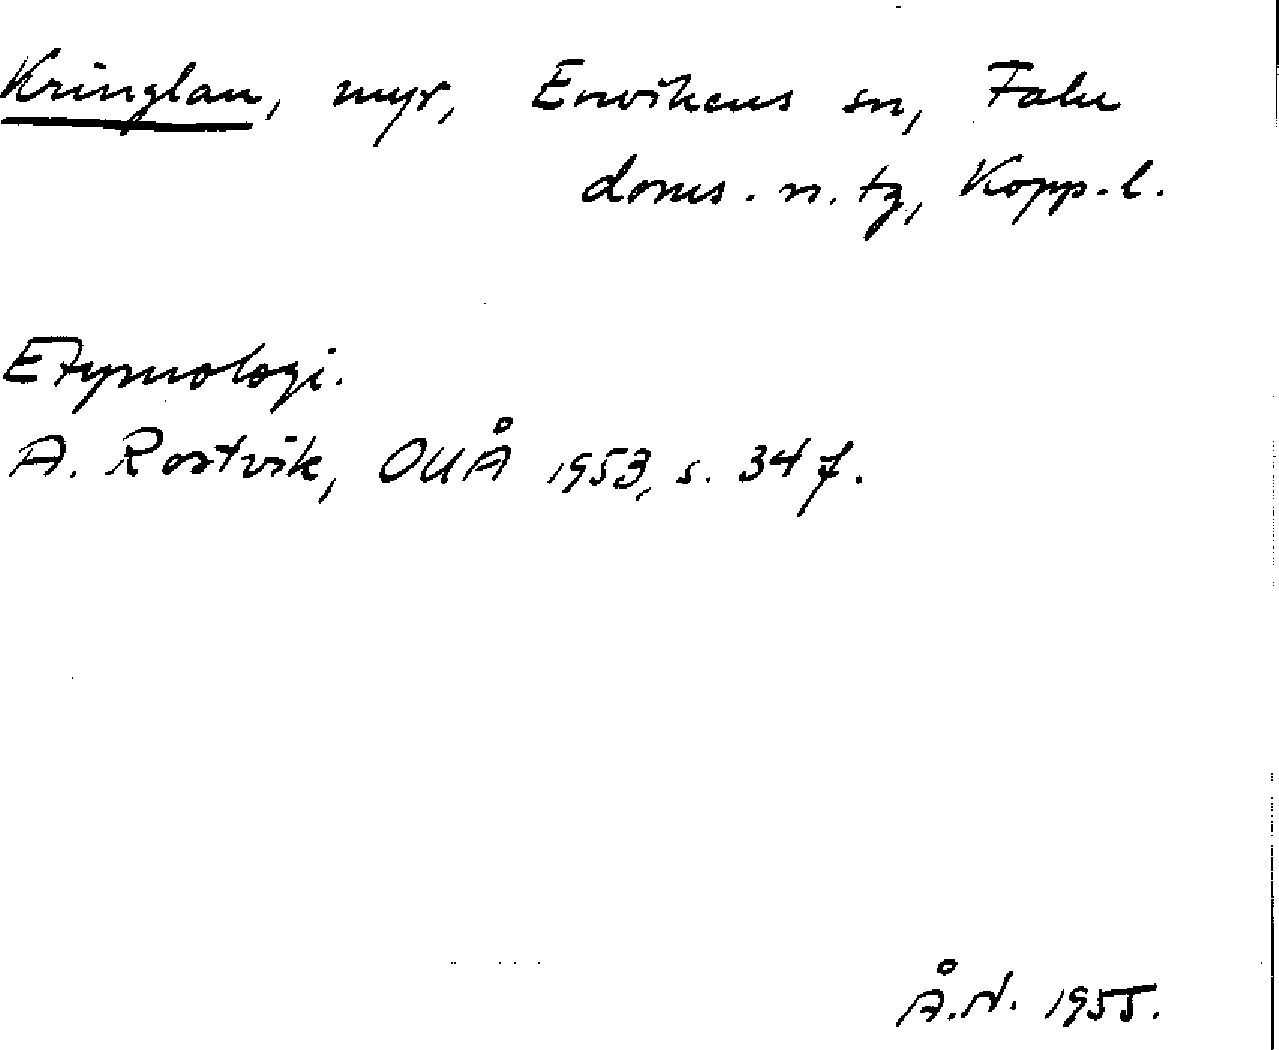 Kringlan, myr, Envikens sn, Falu
doms. n. tg, Kopp. l.
Etymologi.
A. Rostvik, OUÅ 1953, s. 34 f.
Å.N. 1955.